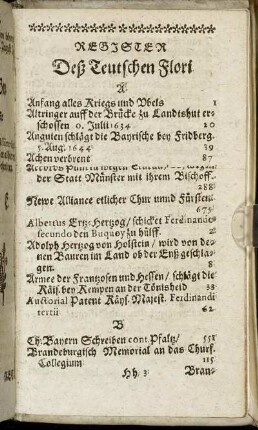 REGISTER
Deß Teutschen Flori
A
Anfang alles Kriegs und Vbels 1
Altringer auff der Brücke zu Landtshut er-
schossen 0. Julii 1634 20
Anguien schlägt die Bayrische bey Fridberg.
5. Aug. 1644 39
Achen verbrent 87
der Statt Münster mit ihrem Bischoff.
288
Newe Alliance etlicher Chur unnd Fürsten
675
Albertus Ertz-Hertzog / schicket Ferdinando
secundo den Buquoy zu hülff. 2
Adolph Hertzog von Holstein / wird von de-
nen Bauren im Land ob der Entz geschla-
gen. 8
Armee der Frantzosen und Hessen / schlägt die
Käis. bey Kempen an der Tönisheid 33
Auctorial Patent Käys. Majest. Ferdinandi
tertii 62
B
Ch. Bayern Schreiben cont. Pfaltz / 551
Brandeburgisch Memorial an das Churf.
Collegium 115
Hh 3 Bran-